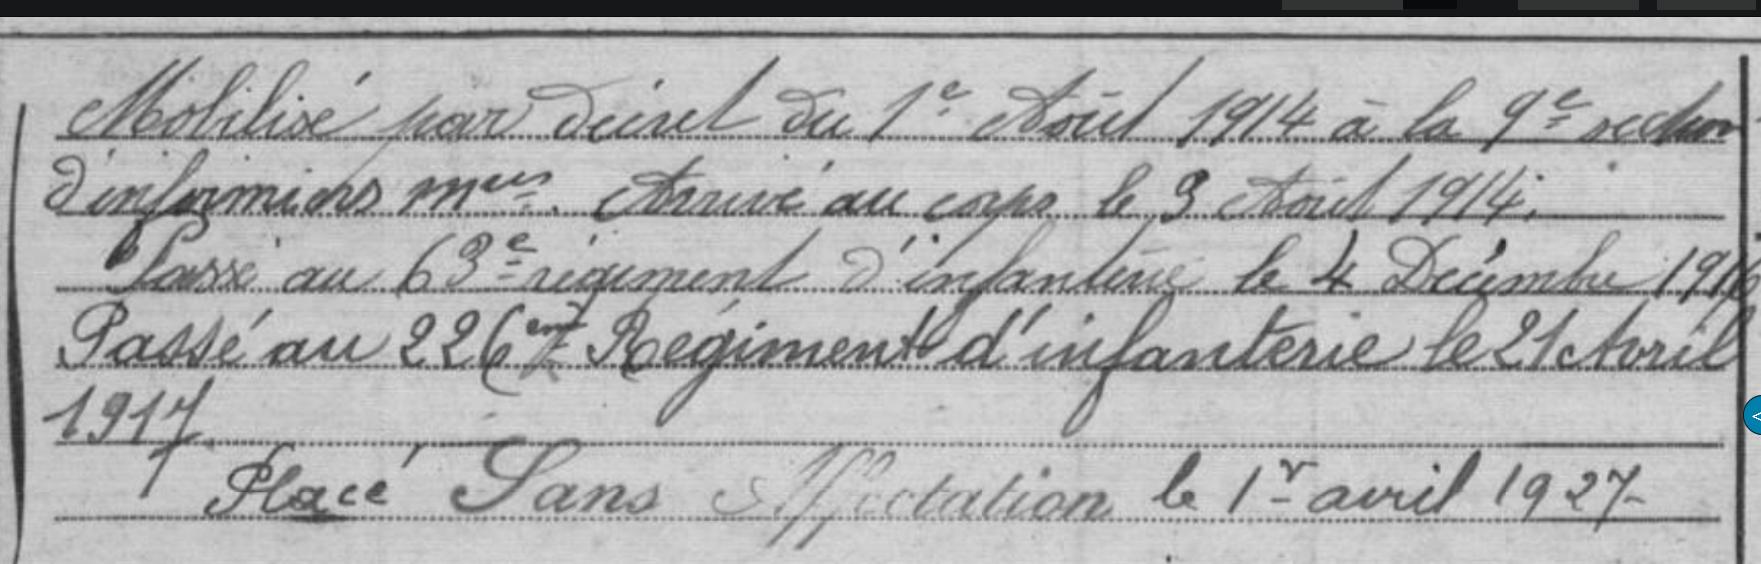 Mobilisé par décret du 1e Août 1914 à la 9e section
d'infirmiers mres. Arrivé au corps le 3 Août 1914.
Passé au 63e régiment d'infanterie le 4 Décembre
Passé au 226eme Régiment d'infanterie le 21 Avril
1917
Placé Sans Affectation le 1r avril 1927